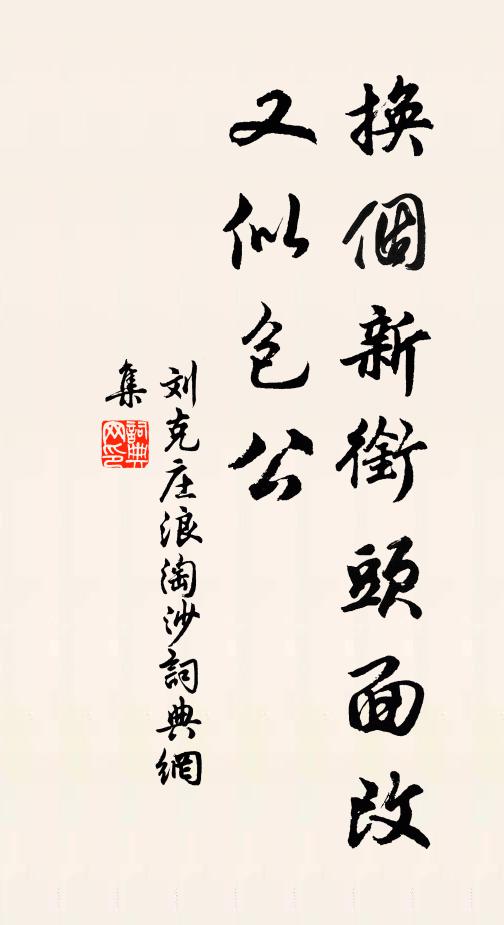 換個新銜頭面改
又似包公
刘克庄浪淘沙詞典網
集
詞典
网印